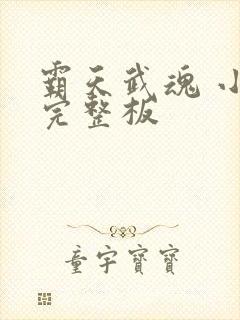 霸天武魂 小
完整板
童宇寶寶